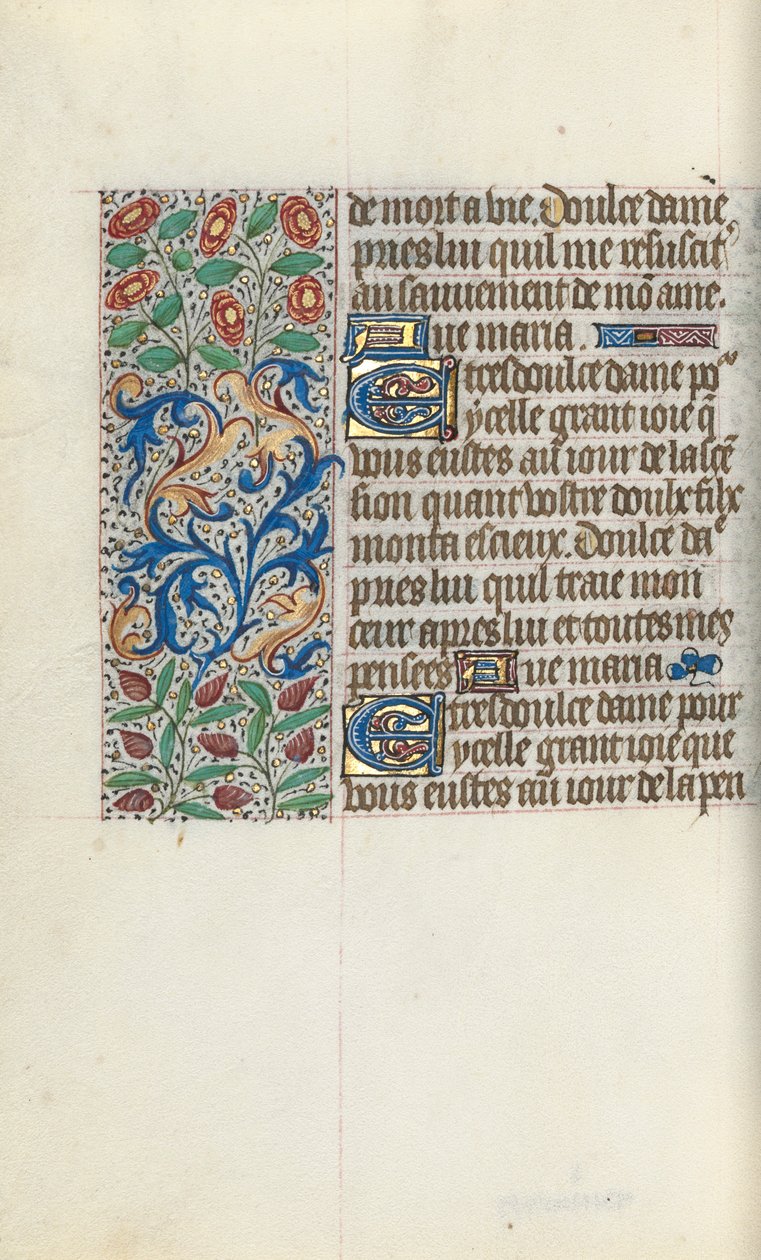 de mort a vie. Doulce dame
pries lui quil me resuscit
au sauuement de mõ ame.
Aue maria.
E tresdoulce dame po
ycelle grant ioie q̃
vous eustes au iour de lascẽ
sion quant vostre doulx filx
monta es cieux. Doulce da
pries lui quil traie mon
cœur apres lui et toutes mes
pensees Aue maria
E tresdoulce dame pour
ycelle grant ioie que
vous eustes au iour de la pen